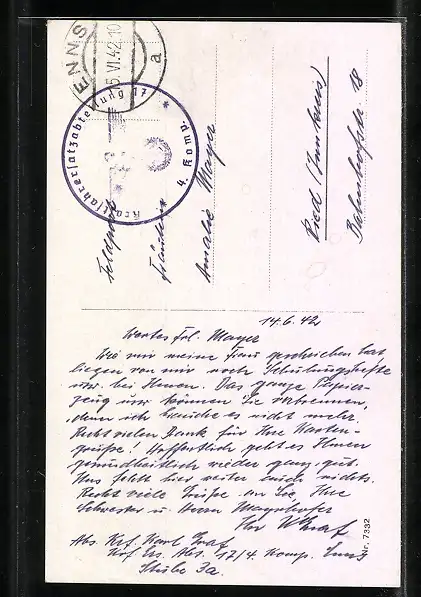 ENNS
15.VI.42.10
a
Kraftfahrersatzabteilung 17 * 4. Komp. *
Feldpost
Fräulein
Amalie Mayer
Ried (Innkreis)
Bahnhofstr. 18
14.6.42
Wertes Frl. Mayer
Wie mir meine Frau geschrieben hat
liegen von mir noch Schulungshefte
usw. bei Ihnen. Das ganze Papier-
zeug usw können Sie verbrennen,
denn ich brauche es nicht mehr.
Recht vielen Dank für Ihre Karten-
grüße! Hoffentlich geht es Ihnen
gesundheitlich wieder ganz gut.
Uns fehlt hier weiter auch nichts.
Recht viele Grüße an Sie, Ihre
Schwester u. Herrn Mayrhofer
Ihr Graf
Abs. Krf. Karl Graf
Krf. Ers. Abt. 17/4. Komp. Enns
Stube
Nr. 7332